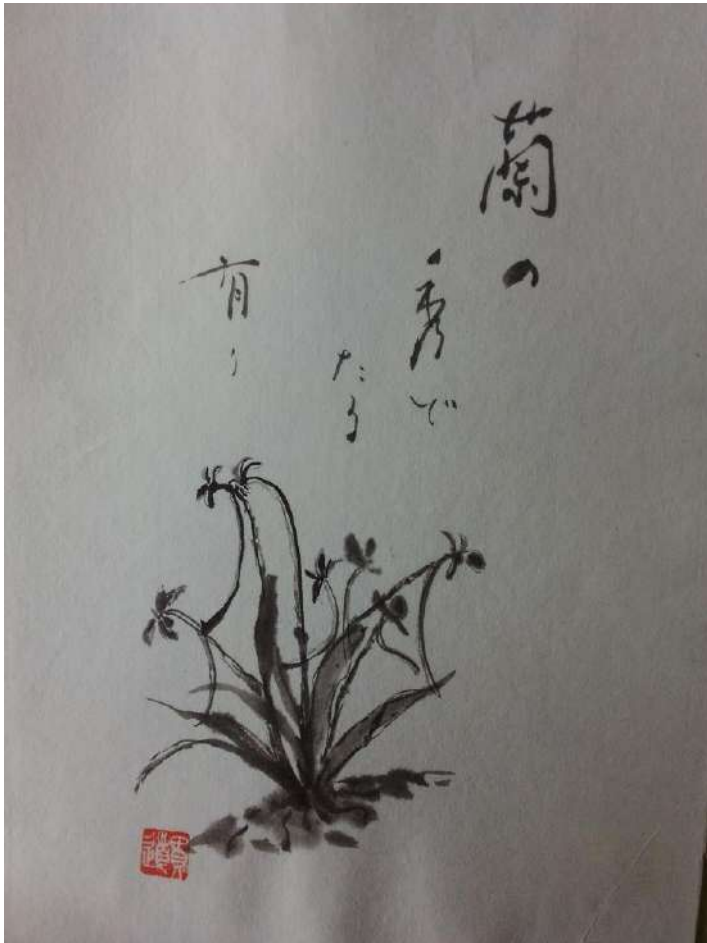 蘭の
秀で
たる
有り